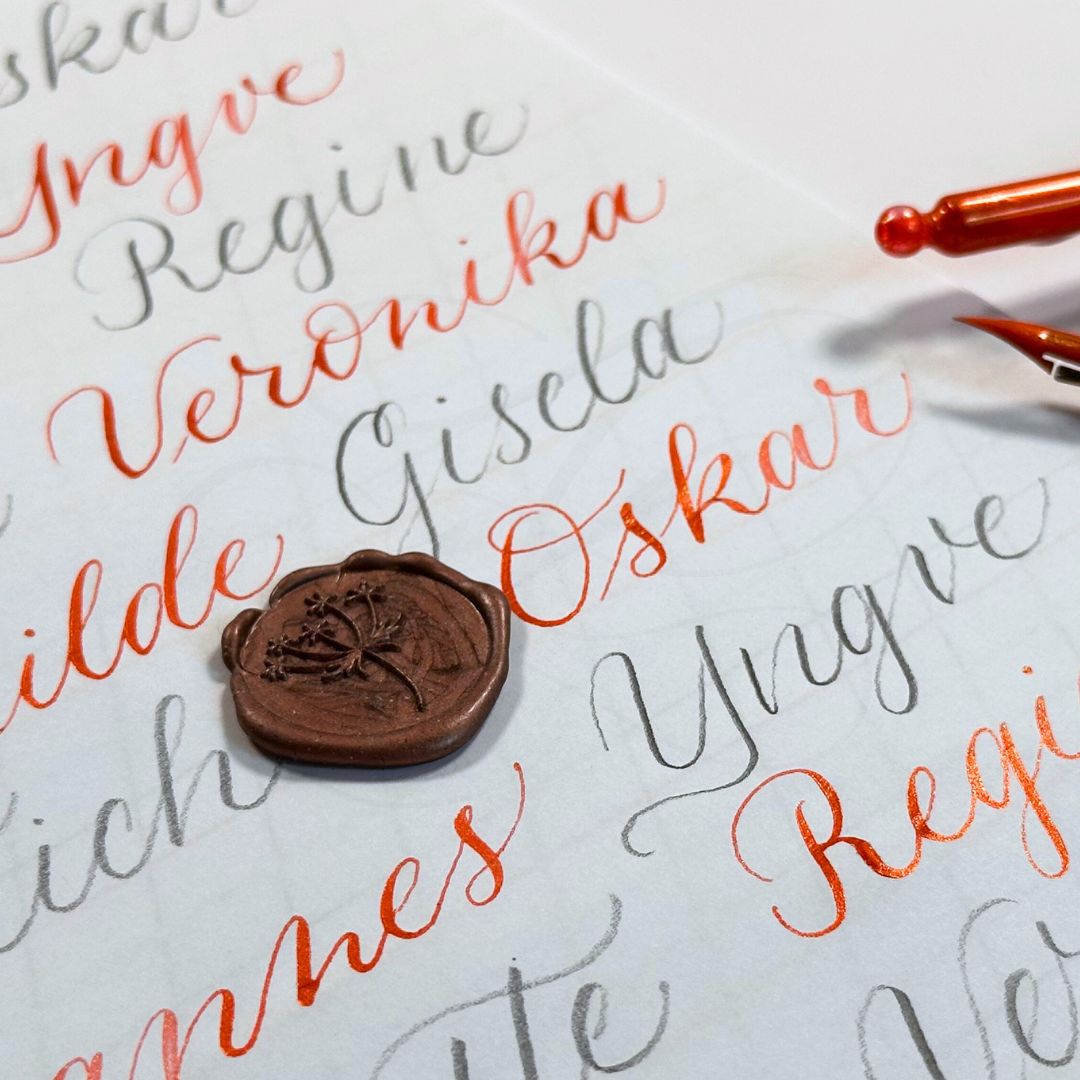 skar
Yngve
Regine
Veronika
Gisela
Oskar
Yngve
ilde
ich
Regi
nnes